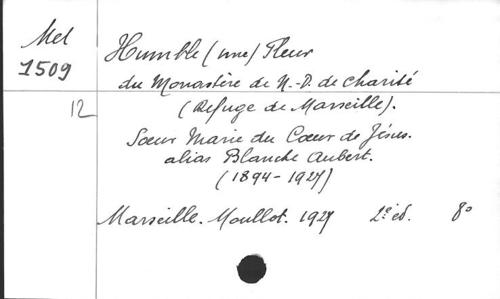 Mel
1509
12
Humble (une) Fleur
du Monastère de N.-D. de Charité
(Refuge de Marseille).
Sœur Marie du Cœur de Jésus.
alias Blanche Aubert.
(1894-1927)
Marseille. Moullot. 1927 2e éd. 8o